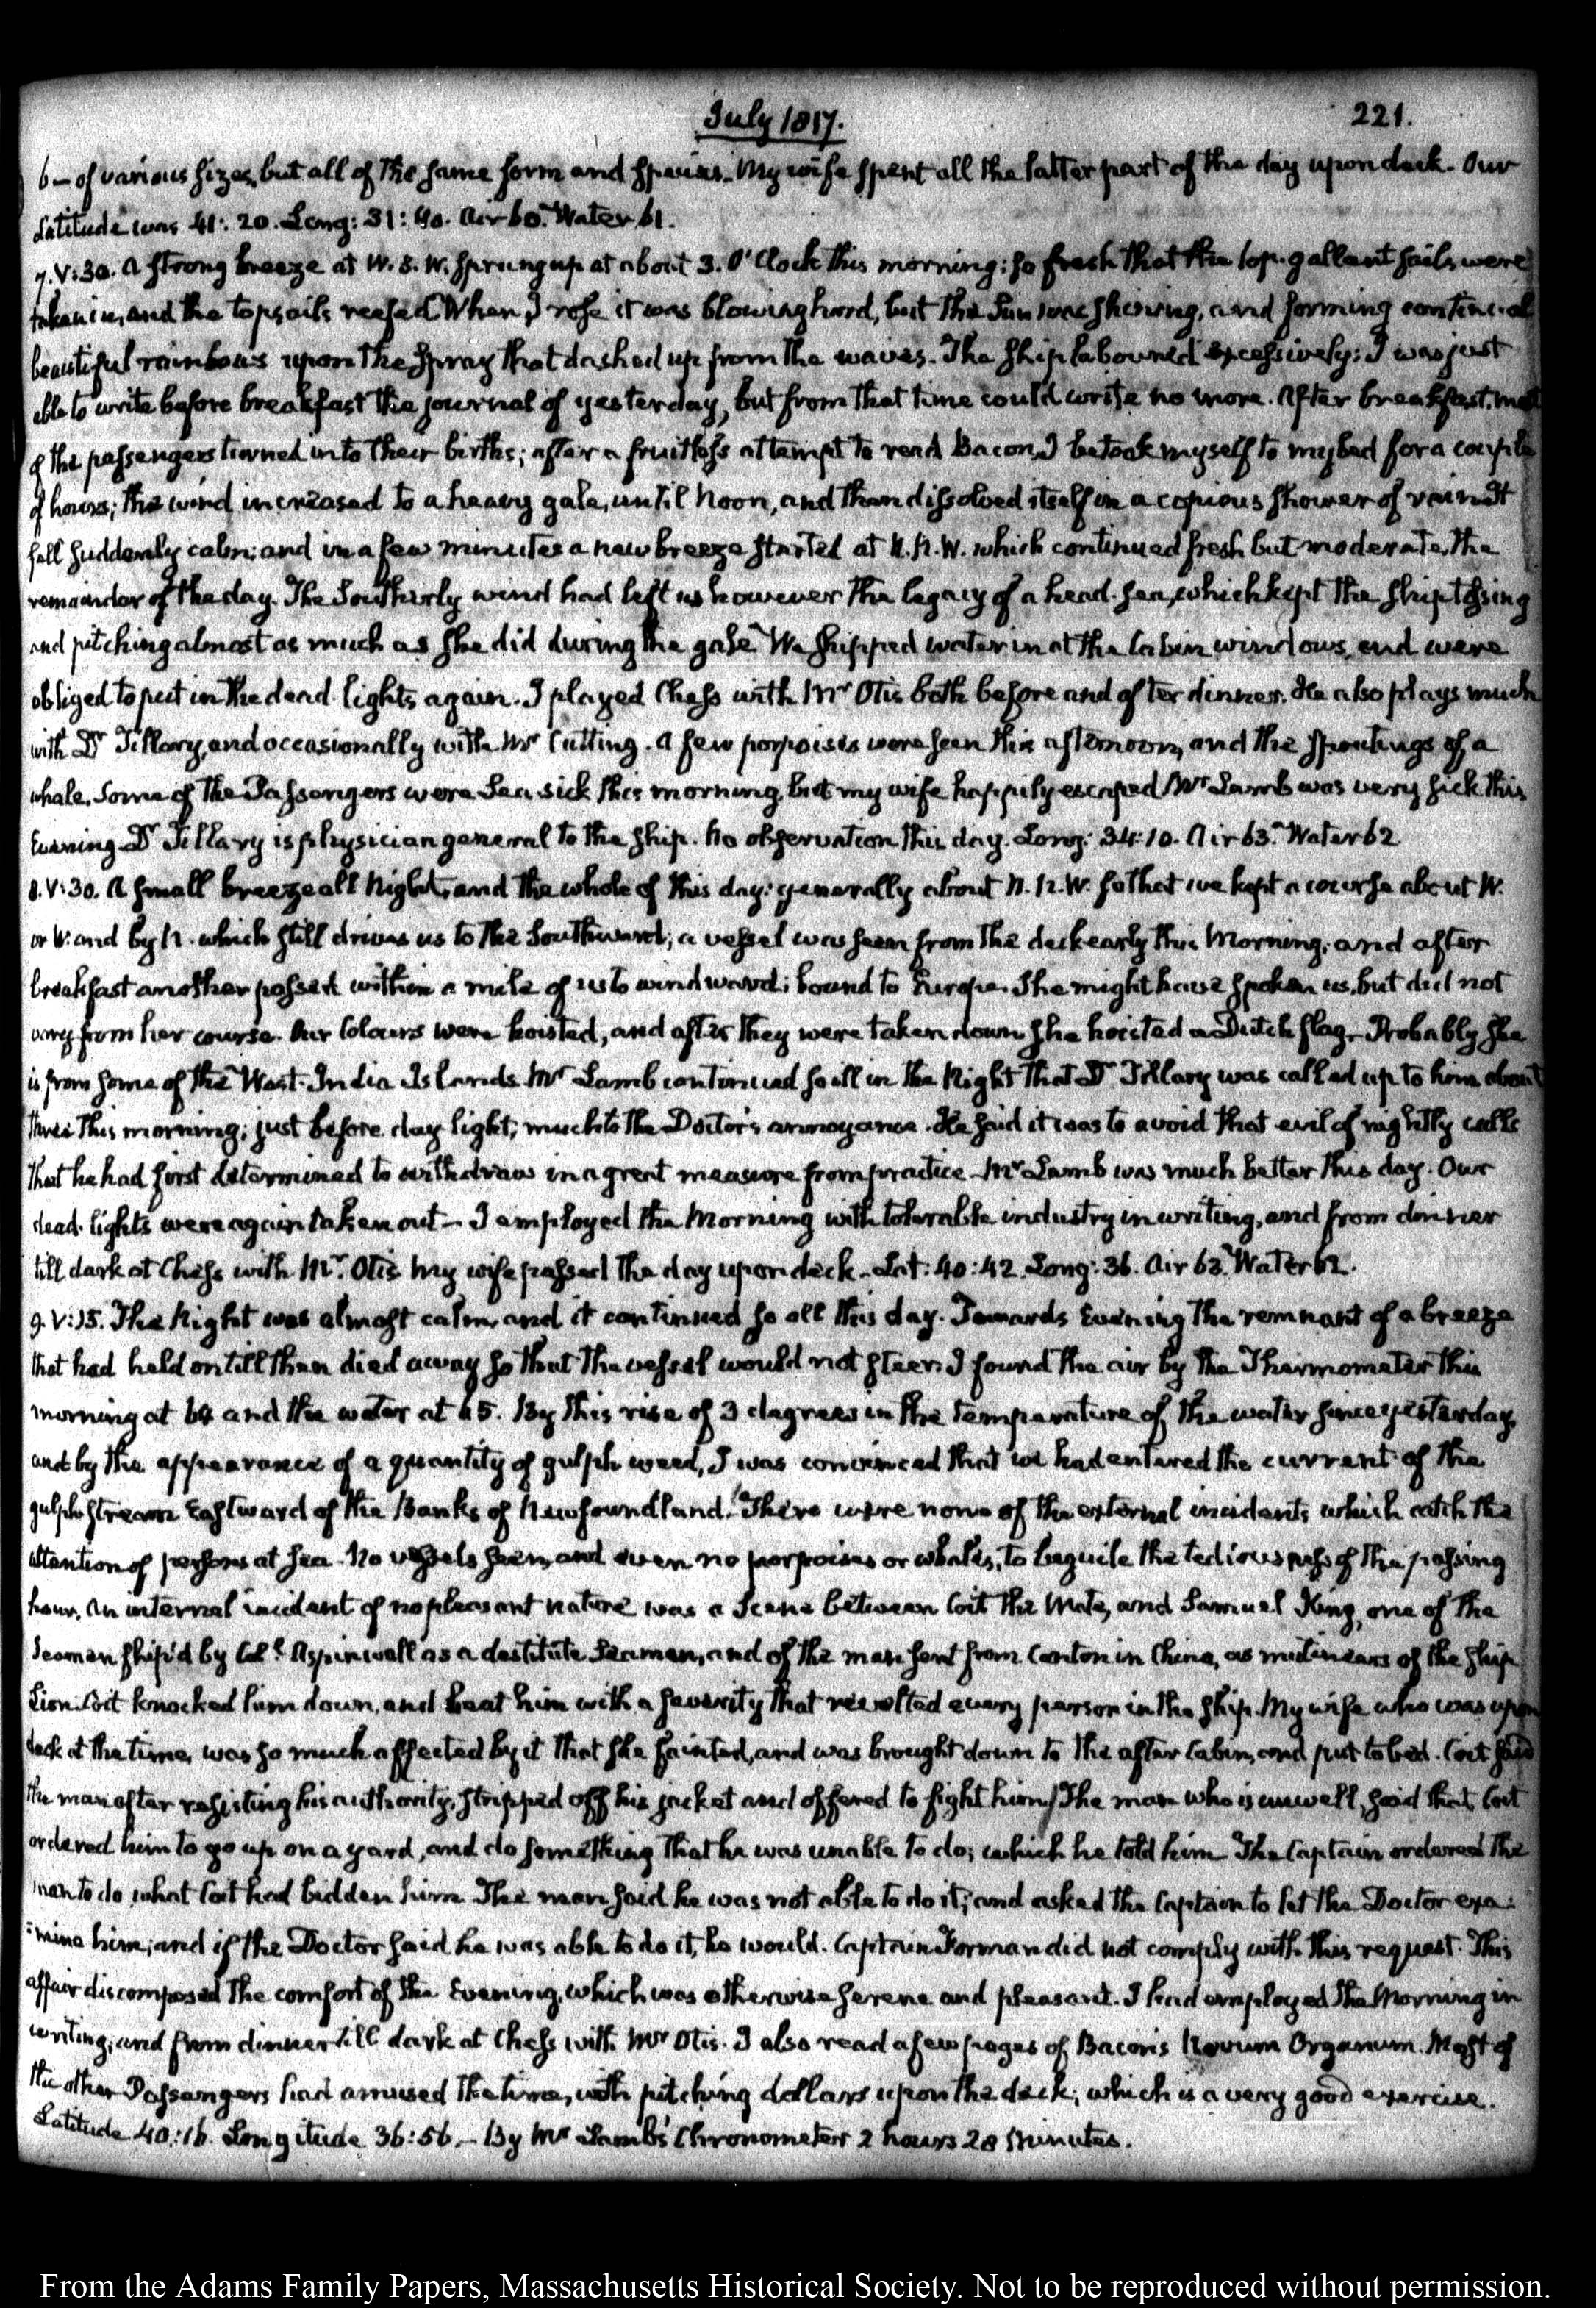 July 1817.
221.
6— of various sizes, but all of the same form and species. My wife spent all the latter part of the day upon deck. Our
Latitude was 41: 20. Long: 31: 40. Air 60. Water 61.
7. V:30. A strong breeze at W. S. W. sprung up at about 3. O'Clock this morning; so fresh that the top-gallant sails were
taken in, and the topsails reefed. When I rose it was blowing hard, but the Sun was shining, and forming continual
beautiful rainbows upon the spray that dashed up from the waves. The ship laboured excessively; I was just
able to write before breakfast the journal of yesterday, but from that time could write no more. After breakfast, most
of the passengers turned into their births; after a fruitless attempt to read Bacon, I betook myself to my bed for a couple
of hours; the wind increased to a heavy gale, until Noon, and then dissolved itself in a copious shower of rain. It
fell suddenly calm; and in a few minutes a new breeze started at N. N. W. which continued fresh but moderate, the
remainder of the day. The Southerly wind had left us however the legacy of a head-sea, which kept the ship tossing
and pitching almost as much as she did during the gale. We shipped water in at the Cabin windows, and were
obliged to put in the dead-lights again. I played Chess with Mr Otis both before and after dinner. He also plays much
with Dr Tillary, and occasionally with Mr Cutting. A few porpoises were seen this afternoon, and the spoutings of a
whale. Some of the Passengers were Sea sick this morning, but my wife happily escaped. Mr Lamb was very sick this
Evening. Dr Tillary is physician general to the ship. No observation this day. Long: 34:10. Air 63. Water 62.
8. V:30. A small breeze all Night, and the whole of this day; generally about N. N. W. so that we kept a course about W.
or W. and by N. which still drives us to the Southward; a vessel was seen from the deck early this Morning, and after
breakfast another passed within a mile of us to windward; bound to Europe. She might have spoken us, but did not
vary from her course. Our Colours were hoisted, and after they were taken down she hoisted a Dutch flag. Probably she
is from some of the West-India Islands. Mr Lamb continued so ill in the Night that Dr Tillary was called up to him about
three this morning; just before day light; much to the Doctor's annoyance. He said it was to avoid that evil of nightly calls
that he had first determined to withdraw in a great measure from practice. Mr Lamb was much better this day. Our
dead-lights were again taken out— I employed the Morning with tolerable industry in writing, and from dinner
till dark at Chess with Mr. Otis. My wife passed the day upon deck. Lat: 40:42. Long: 36. Air 63. Water 62.
9. V:15. The Night was almost calm, and it continued so all this day. Towards Evening the remnant of a breeze
that had held on till then died away so that the vessel would not steer. I found the air by the Thermometer this
morning at 64 and the water at 65. By this rise of 3 degrees in the temperature of the water since yesterday,
and by the appearance of a quantity of gulph weed, I was convinced that we had entered the current of the
gulph stream Eastward of the Banks of Newfoundland. There were none of the external incidents which catch the
attention of persons at sea. No vessels seen, and even no porpoises or whales, to beguile the tediousness of the passing
hour. An internal incident of no pleasant nature was a scene between Coit the Mate, and Samuel King, one of the
Seamen ship'd by Coll. Aspinwall as a destitute seaman, and of the men sent from Canton in China, as mutineers of the ship
Lion. Coit knocked him down, and beat him with a severity that revolted every person in the ship. My wife who was upon
deck at the time, was so much affected by it that she fainted, and was brought down to the after Cabin, and put to bed. Coit said
the man after resisting his authority, stripped off his jacket and offered to fight him. The man who is unwell, said that Coit
ordered him to go up on a yard, and do something that he was unable to do; which he told him. The Captain ordered the
man to do what Coit had bidden him. The man said he was not able to do it; and asked the Captain to let the Doctor exa-
-mine him; and if the Doctor said he was able to do it, he would. Captain Forman did not comply with this request. This
affair discomposed the comfort of the Evening, which was otherwise serene and pleasant. I had employed the Morning in
writing; and from dinner till dark at Chess with Mr Otis. I also read a few pages of Bacon's Novum Organum. Most of
the other Passengers had amused the time, with pitching dollars upon the deck; which is a very good exercise.
Latitude 40:16. Longitude 36:56.— By Mr Lamb's Chronometer 2 hours 28 Minutes.
From the Adams Family Papers, Massachusetts Historical Society. Not to be reproduced without permission.